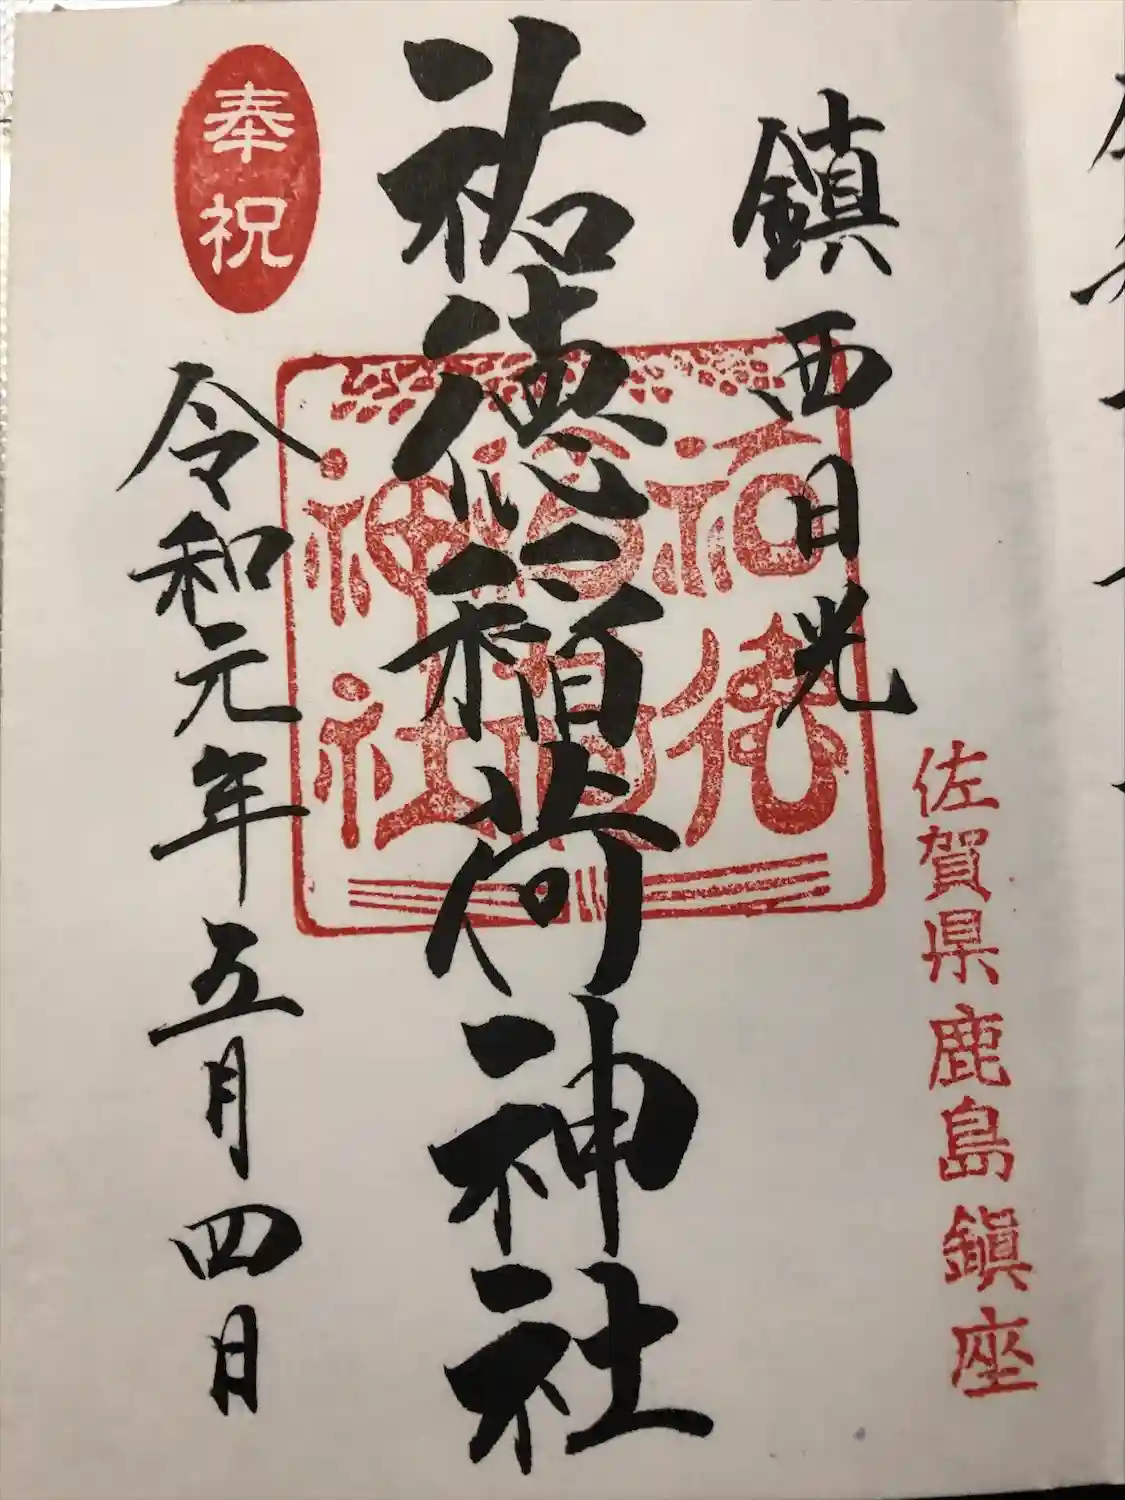 鎮西日光
佐賀県鹿島鎮座
祐徳稲荷神社
祐徳
稲荷
神社
奉祝
令和元年五月四日